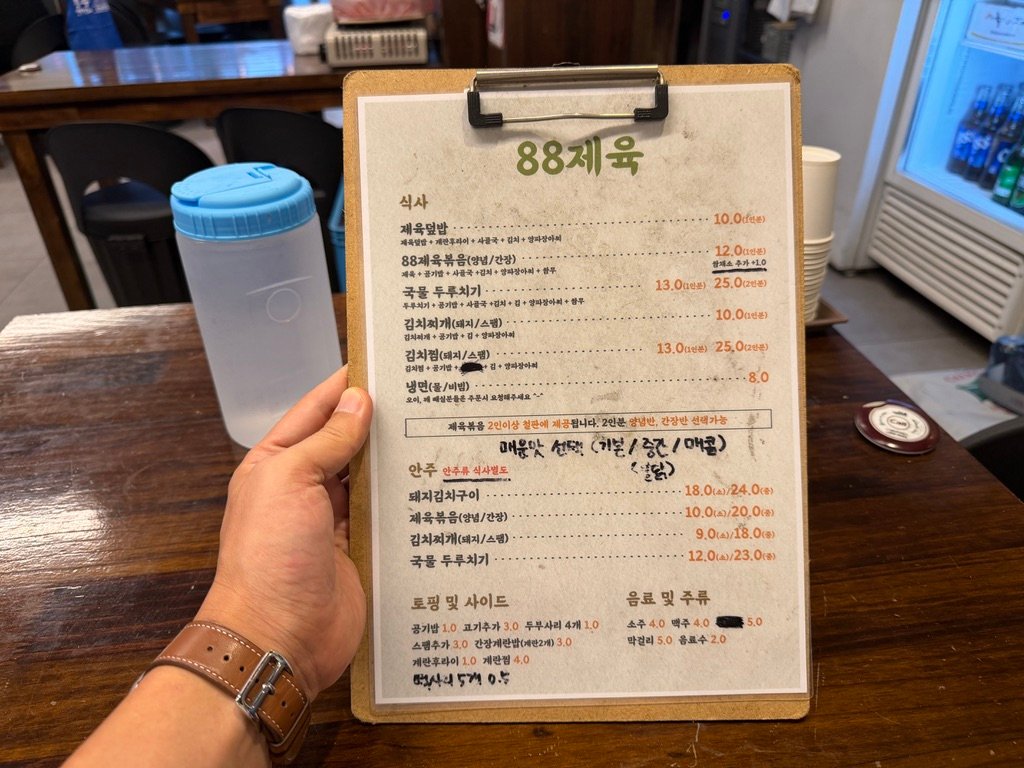 88제육
식사
제육덮밥 10.0(1인분)
제육덮밥 + 계란후라이 + 사골국 + 김치 + 양파장아찌
88제육볶음(양념/간장) 12.0(1인분)
제육 + 공기밥 + 사골국 +김치 + 양파장아찌 + 쌈무
쌈채소 추가 +1.0
국물 두루치기 13.0(1인분) 25.0(2인분)
두루치기 + 공기밥 + 사골국 +김치 + 김 + 양파장아찌 + 쌈무
김치찌개(돼지/스팸) 10.0(1인분)
김치찌개 + 공기밥 + 김 + 양파장아찌
김치찜(돼지/스팸) 13.0(1인분) 25.0(2인분)
김치찜 + 공기밥 + + 김 + 양파장아찌
냉면(물/비빔) 8.0
오이, 깨 빼실분들은 주문시 요청해주세요 ^-^
제육볶음 2인이상 철판에 제공됩니다. 2인분 양념반, 간장반 선택가능
매운맛 선택 (기본/중간/매콤)
안주 안주류 식사별도
돼지김치구이 18.0(소)/24.0(중)
제육볶음(양념/간장) 10.0(소)/20.0(중)
김치찌개(돼지/스팸) 9.0(소)/18.0(중)
국물 두루치기 12.0(소)/23.0(중)
토핑 및 사이드
공기밥 1.0 고기추가 3.0 두부사리 4개 1.0
스팸추가 3.0 간장계란밥(계란2개) 3.0
계란후라이 1.0 계란찜 4.0
떡사리 5개 0.5
음료 및 주류
소주 4.0 맥주 4.0 5.0
막걸리 5.0 음료수 2.0